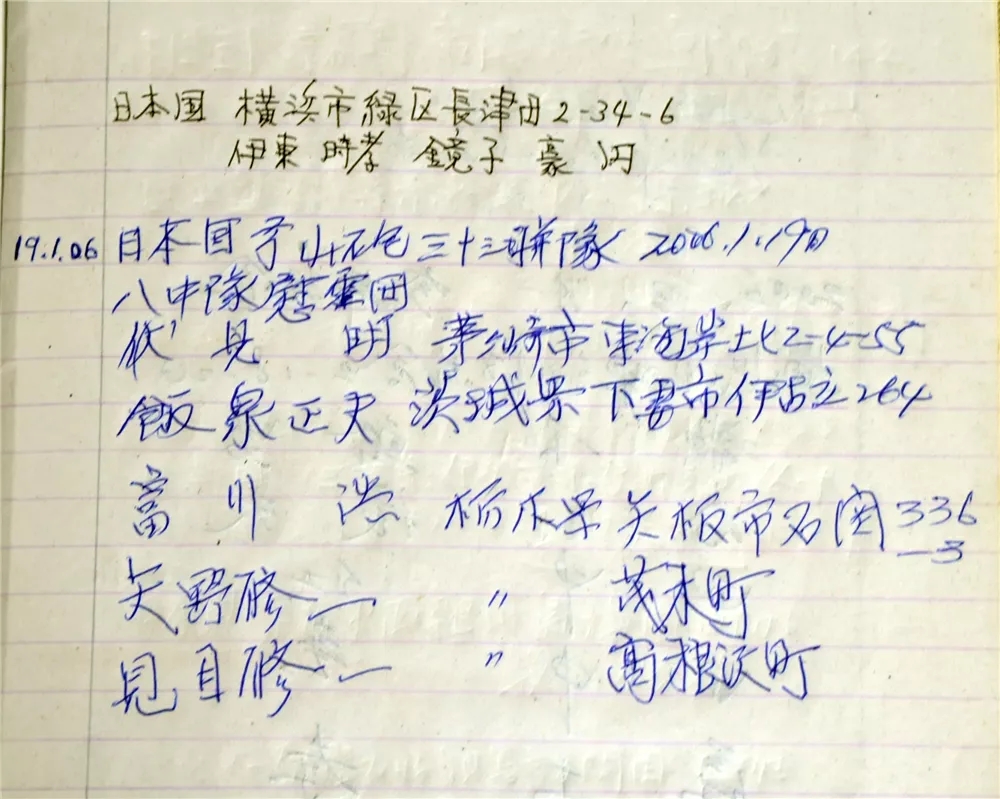 日本国 横浜市緑区長津田2-34-6
伊東 時孝 鏡子 豪 円
19.1.06 日本国 山砲三十三聯隊 2006.1.19日
八中隊慰霊団
伏見 明 茅ヶ崎市東海岸北2-4-55
飯泉正夫 茨城県下妻市伊古立264
富川 栃木県矢板市石関336
-3
矢野修一 〃 茂木町
見目修一 〃 高根沢町